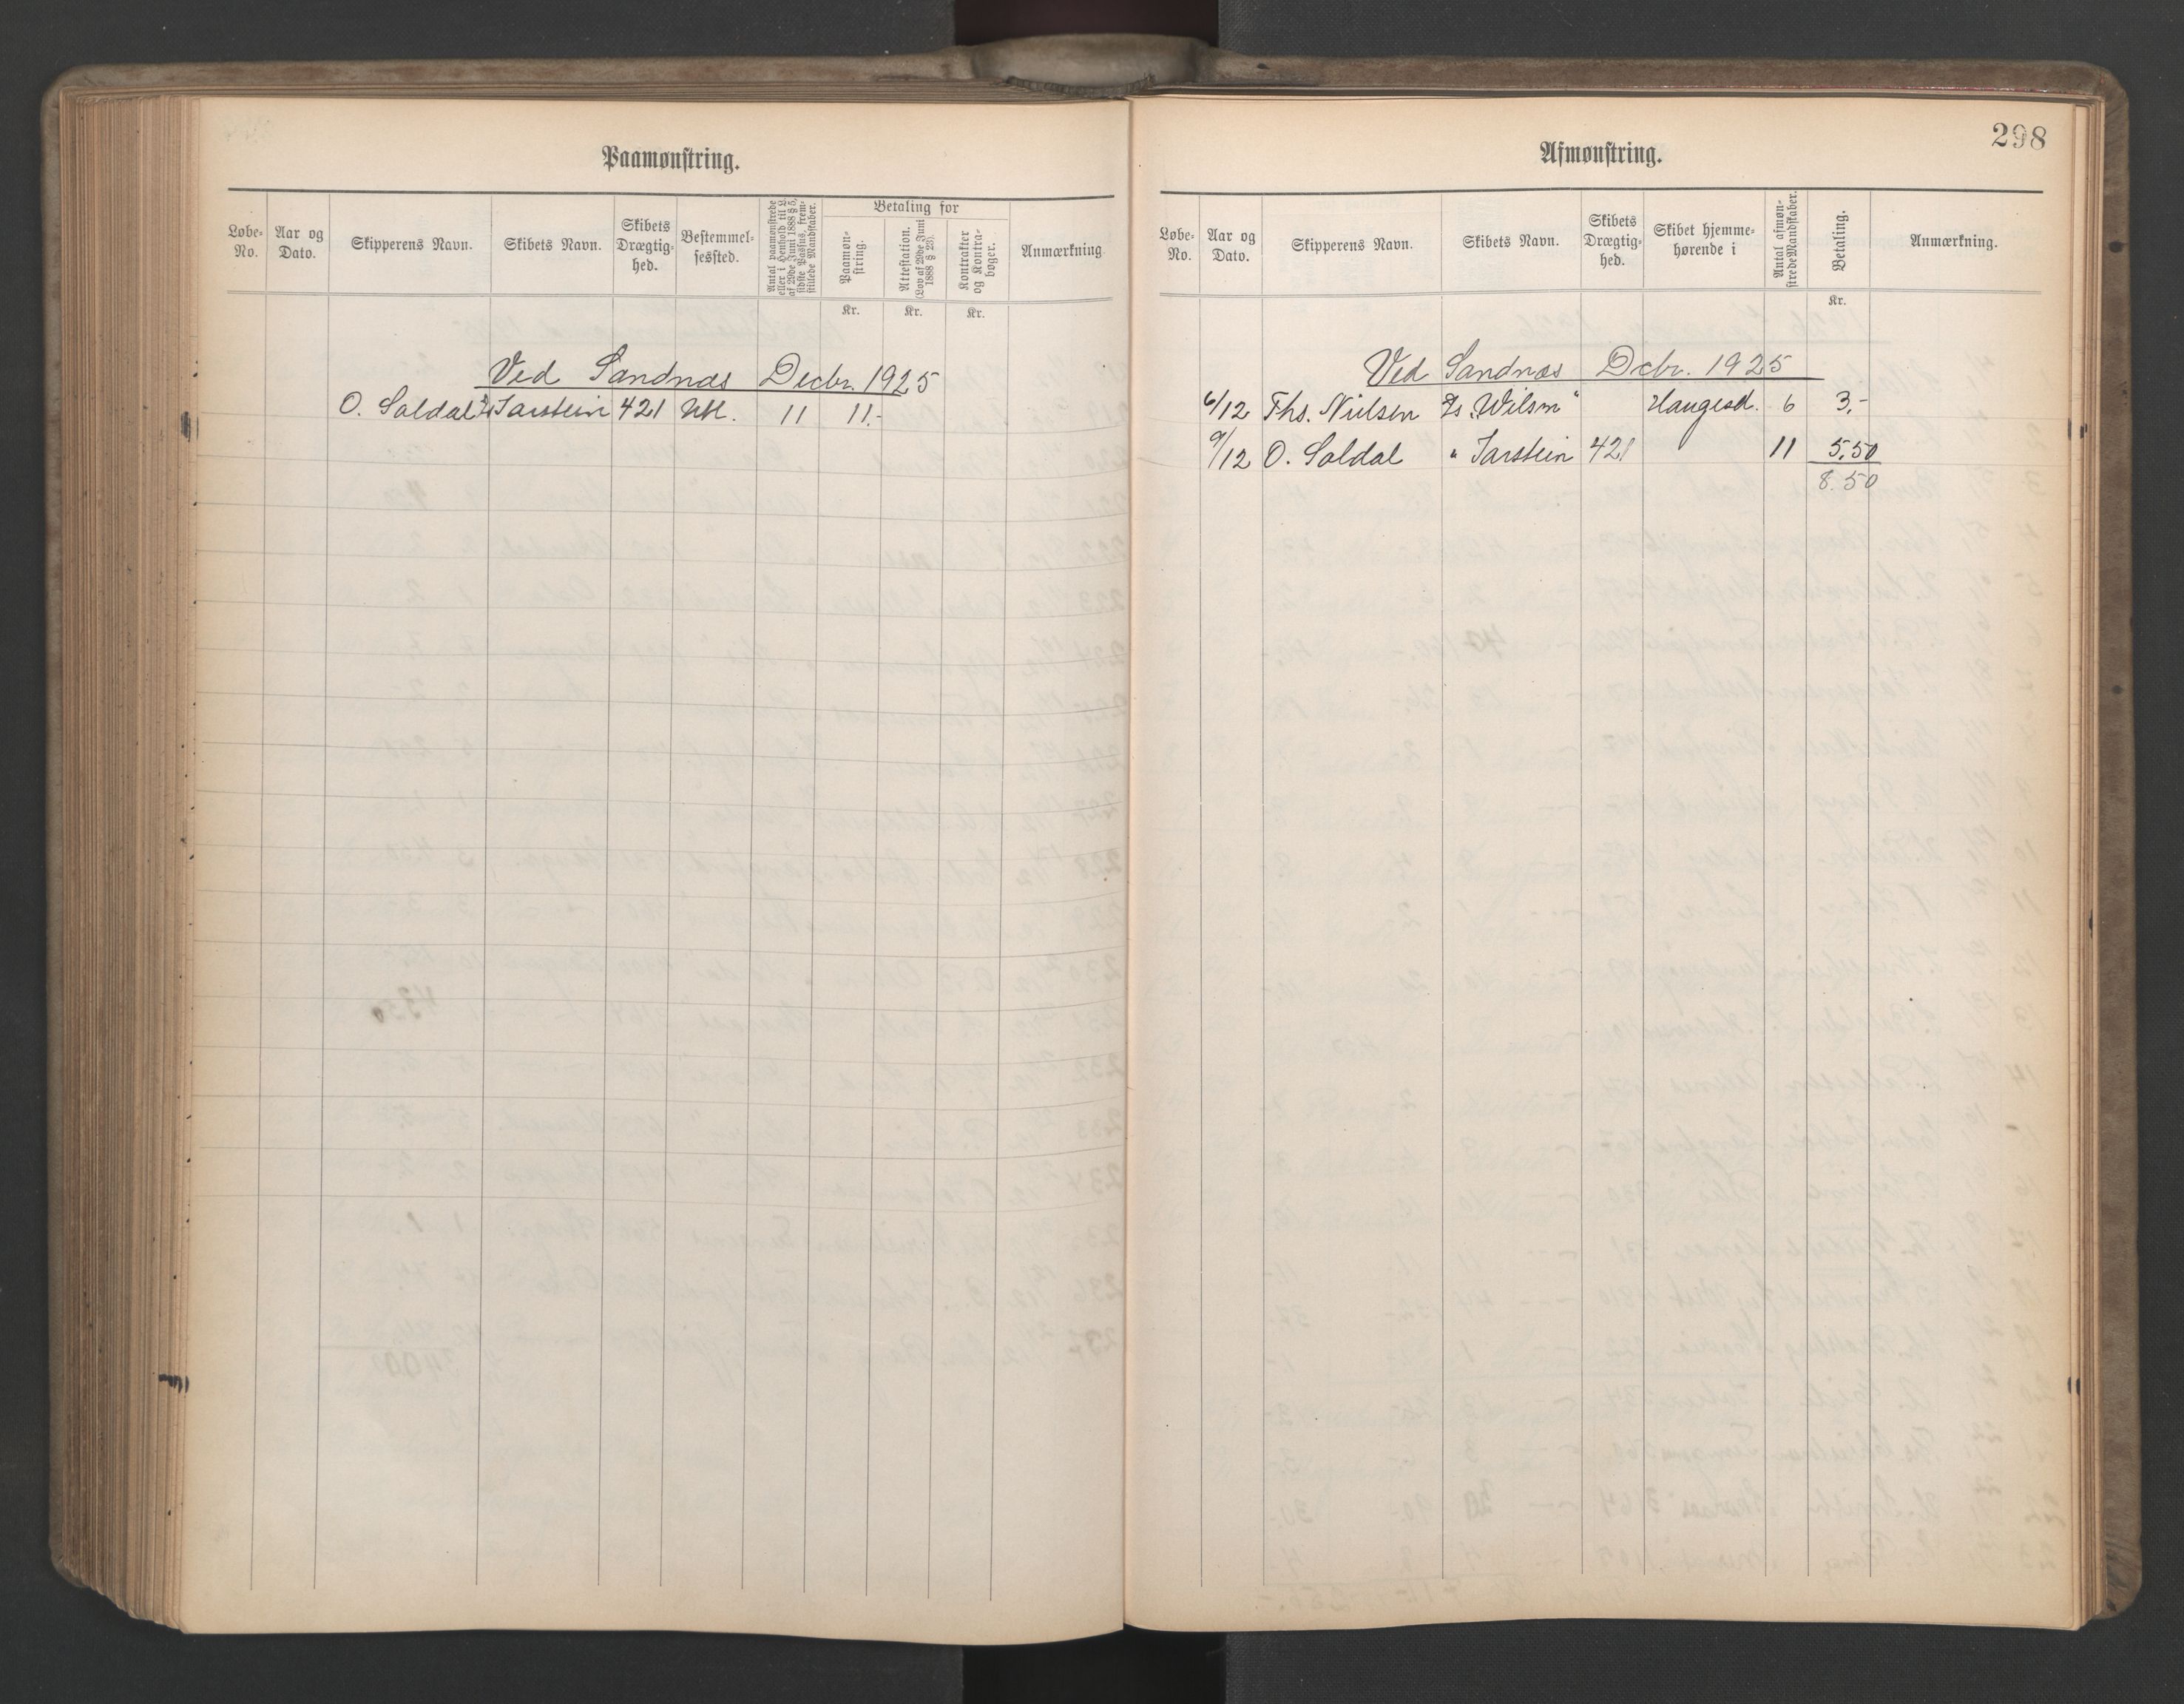 Paamønstring.
Løbe-No. Aar og Dato. Skipperens Navn. Skibets Navn. Skibets Drægtig-hed. Bestemmel-sessted. Antal paamønstrede eller i Henhold til L. af 29de Juni 1888 § 5, sidste Passus, frem-stillede Mandskaber. Betaling for Paamøn-string. Attestation. (Lov af 29de Juni 1888 § 23). Kontrakter og Kontra-bøger. Anmærkning
Kr. Kr. Kr.
Ved Sandnæs Decbr. 1925
O. Soldal Jarstein 421 Utl. 11 11.-
298
Afmønstring.
Løbe-No. Aar og Dato. Skipperens Navn. Skibets Navn. Skibets Drægtig-hed. Skibet hjemme-hørende i Antal afmøn-strede Mandskaber. Betaling. Anmærkning.
Kr.
Ved Sandnæs Dcbr. 1925
6/12 Ths. Nielsen Ds. „Wilson“ Haugesd. 6 3,-
9/12 O. Soldal " Jarstein 421 11 5.50
8.50